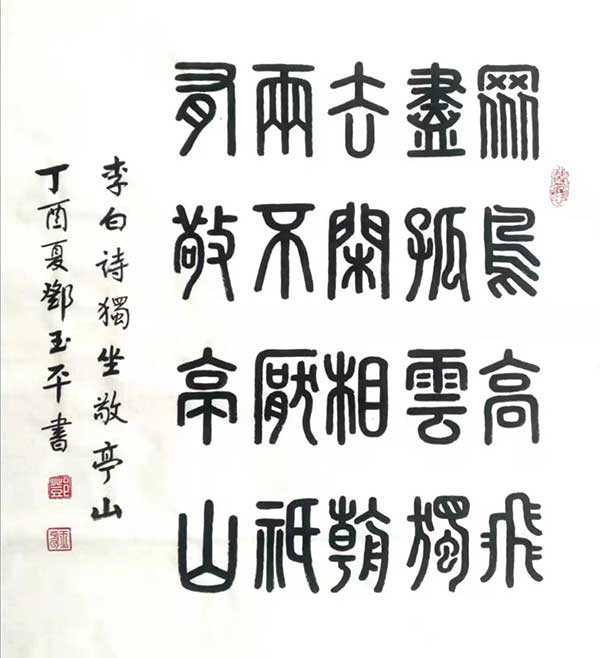 眾鳥高飛
盡孤雲獨
去閑相看
兩不厭祇
有敬亭山
李白诗獨坐敬亭山
丁酉夏鄧玉平書